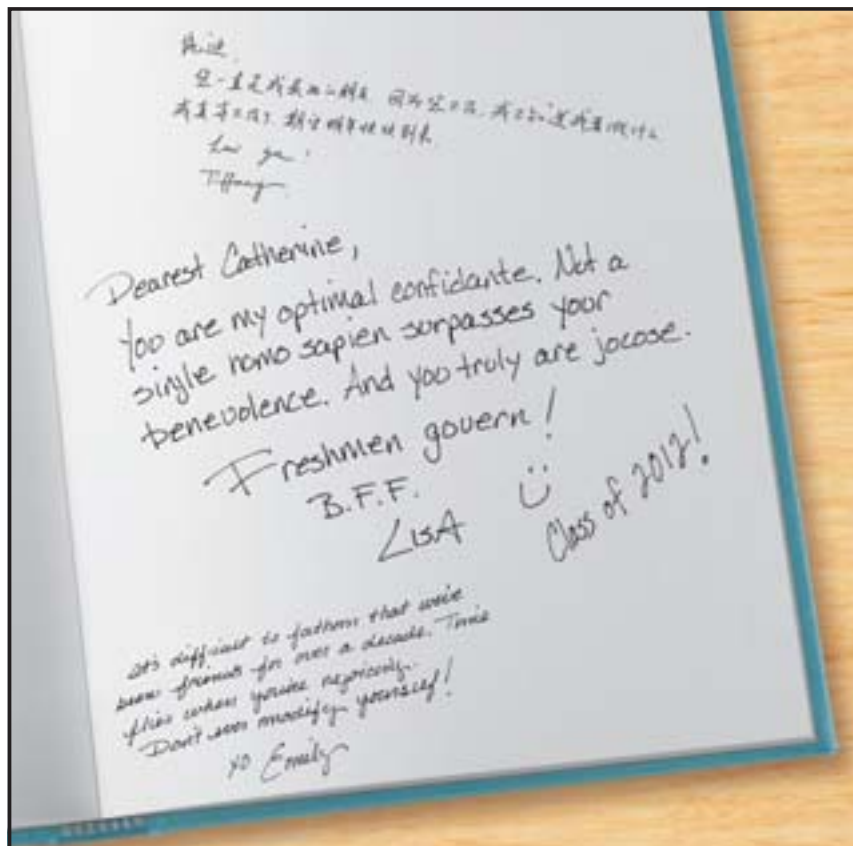 一直是我最好的朋友 因为 我不知道我要做什么
我真等不及了 明年快快到来
Luv ya.
Tiffany
Dearest Catherine,
You are my optimal confidante. Not a
single homo sapien surpasses your
benevolence. And you truly are jocose.
Freshmen govern!
B.F.F.
LisA
Class of 2012!
It's difficult to fathom that we've
been friends for over a decade. Time
flies when you're rejoicing.
Don't ever modify yourself!
xo Emily